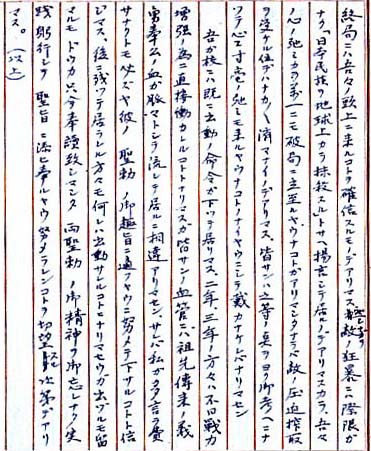 終局ニハ吾々ノ頭上ニ来ルコトヲ確信スルモノデアリマス、敵ノ狂暴ニ際限ガ
ナク「日本民族ヲ地球上カラ抹殺スル」トサヘ揚言シテ居ルノデアリマスカラ、吾々
心ノ弛ミカラ万一ニモ破局ニ立至ルヤウナコトガアリマシタナラバ敵ノ圧迫搾取
ヲ受ケル位デハナカ〳〵済マナイノデアリマス、皆サンハ之等ノ点ヲヨク御考ヘニナ
ツテ心ニ寸毫ノ弛ミモ来ルヤウナコトノナイヤウニシテ戴カナケレバナリマセン
吾ガ校ニハ既ニ出動ノ命令ガ下ツテ居リマス、二年、三年ノ方々ハ不日戦力
増強ノ為ニ直接働カレルコトトナリマスガ皆サンノ血管ニハ祖先傳来ノ義
勇奉公ノ血ガ脈々トシテ流レテ居ルニ相違アリマセン、サレバ私ガ多言ヲ費
サナクトモ必ズヤ彼ノ 聖勅ノ御趣旨ニ適フヤウニ努メテ下サルコトト信
ジマス、後ニ残ツテ居ラレル方々モ何レハ出動サルルコトニナリマセウガ出ヅルモ留
マルモドウカ只今奉読致シマシタ 両聖勅ノ御精神ヲ御忘レナク実
践躬行シテ 聖旨ニ添ヒ奉ルヤウ努メラレンコトヲ切望スル次第デアリ
マス。(以上)